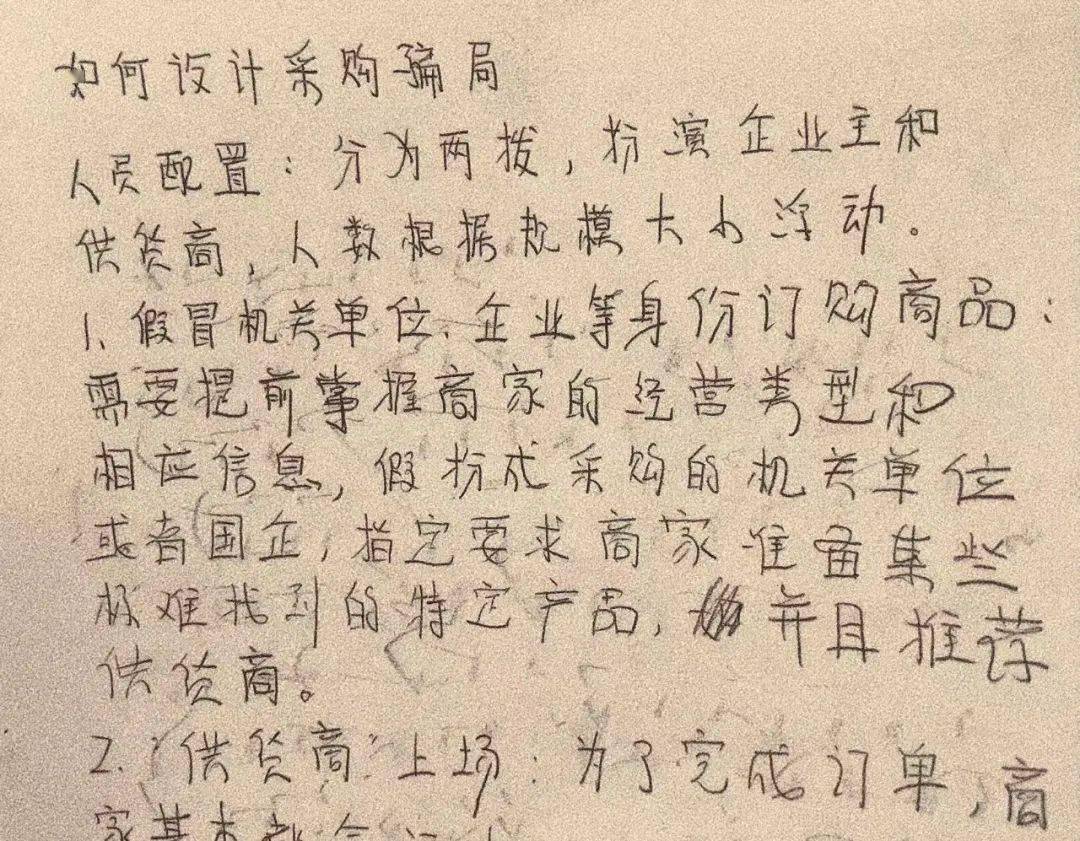 如何设计采购骗局
人员配置：分为两拨，扮演企业主和
供货商，人数根据规模大小浮动。
1、假冒机关单位、企业等身份订购商品：
需要提前掌握商家的经营类型和
相应信息，假扮成采购的机关单位
或者国企，指定要求商家准备某些
极难找到的特定产品，并且推荐
供货商。
2.“供货商”上场：为了完成订单，商
家基本都会